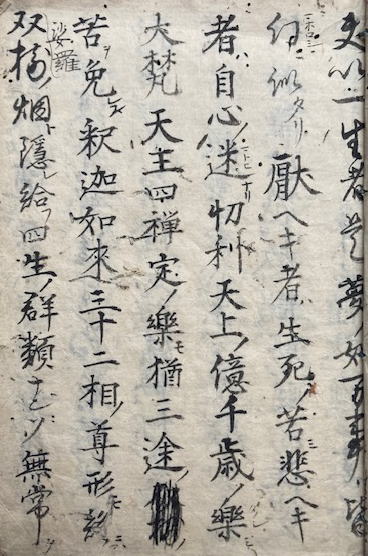 夫以一生者是夢ノ如万事ハ皆
幻ニ似タリ厭ヘキ者ハ生死ノ苦悲ヘキ
者ハ自心ノ迷切利天上ノ億千歳ノ樂
大梵天王四禅定ノ樂モ猶三途ノ
苦ヲ免レス釈迦如來三十二相ノ尊形モ
娑羅双樹ノ烟ト隠レ給フ四生ノ群類ノ無常